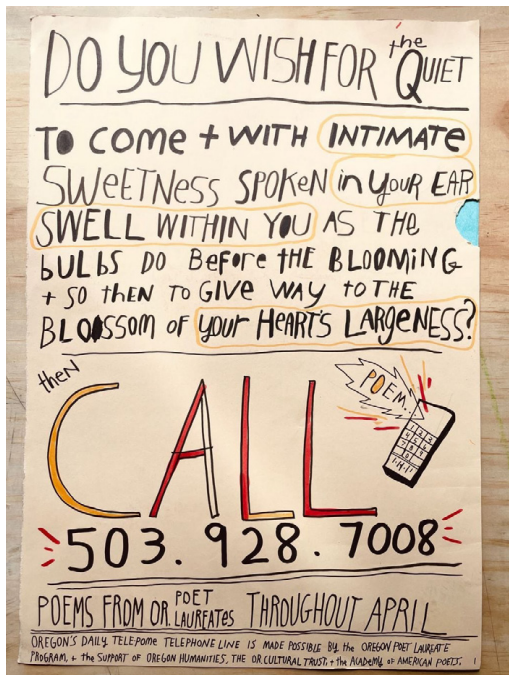 DO YOU WISH FOR the QUIET
TO COME + WITH INTIMATE
SWEETNESS SPOKEN in YOUR EAR
SWELL WITHIN YOU AS THE
bULbS DO BeFore THE BLOOMING
+ SO THEN TO GIVE WAY TO THE
BLOSSOM OF YOUR HEART'S LARGENESS?
then
POEM..
CALL
1 2 3
4 5 6
7 8 9
503.928.7008
POEMS FROM OR. POET LAUREATES THROUGHOUT APRIL
OREGON'S DAILY TELEPOME TELEPHONE LINE IS MADE POSSIBLE BY the OREGON POET LAUREATE
PROGRAM, + the SUPPORT OF OREGON HUMANITIES, THE OR. CULTURAL TRUST, + the ACADEMY of AMERICAN POETS.